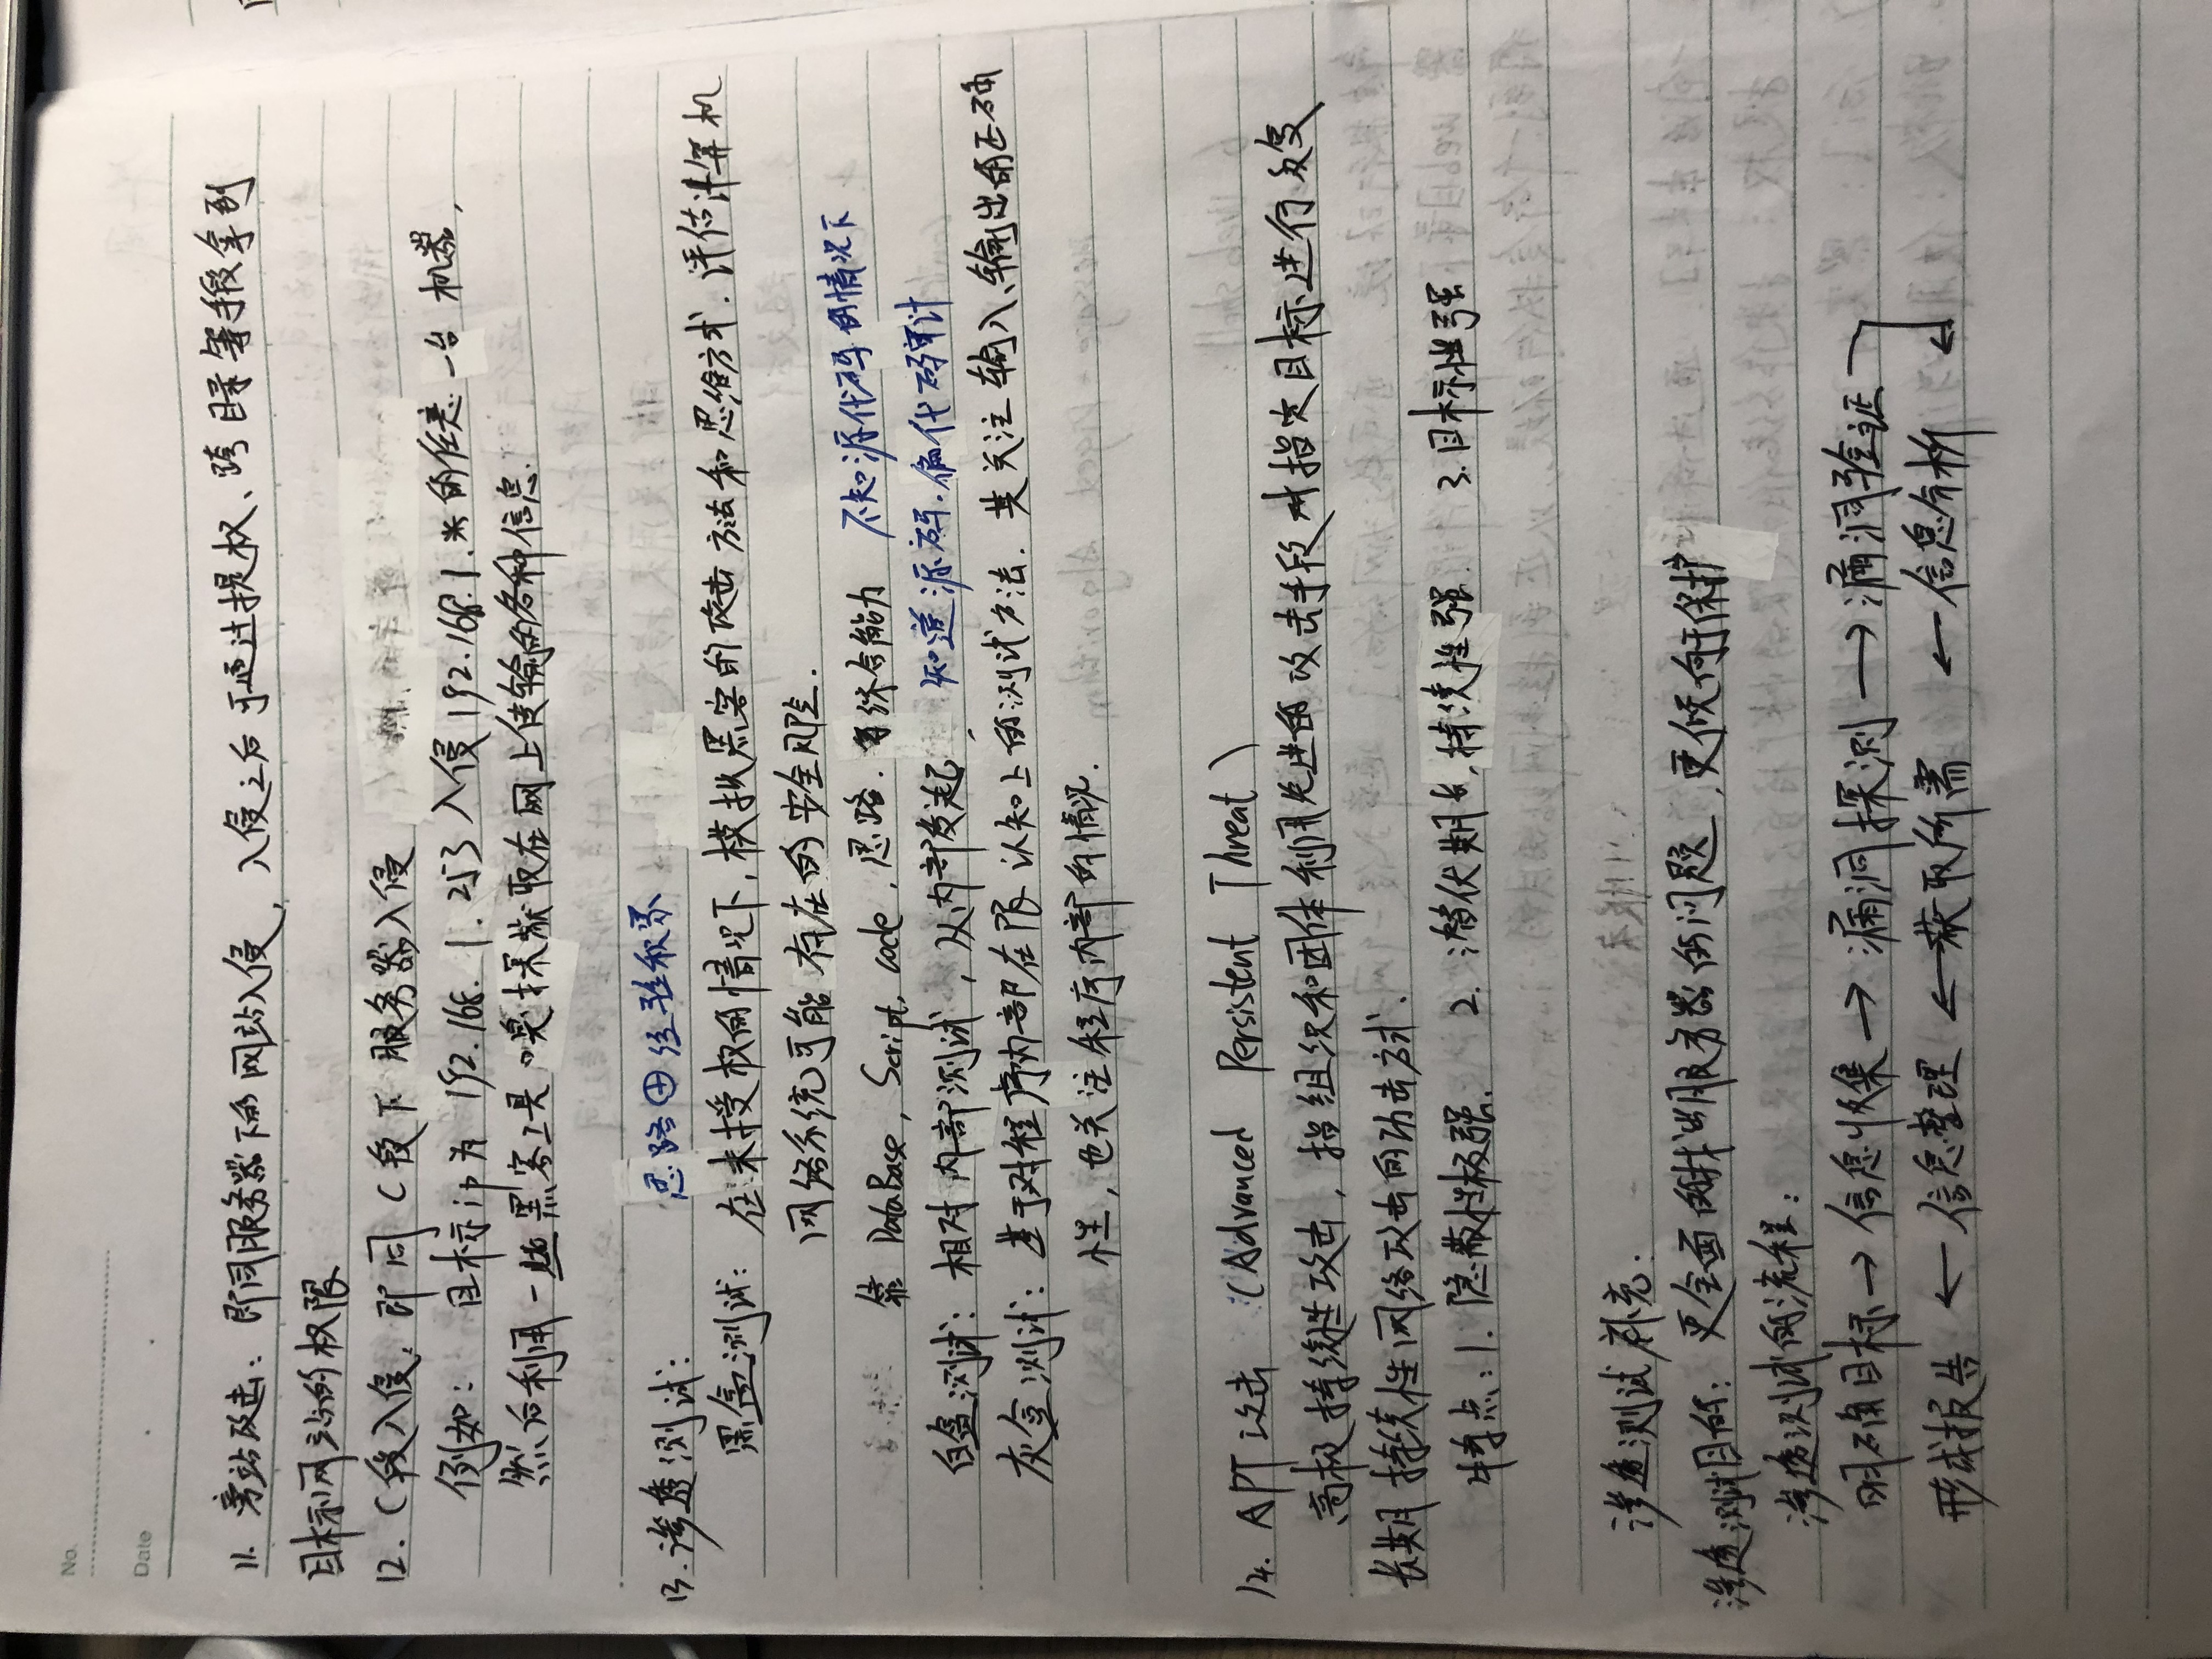 No.
Date
11. 旁站攻击：即同服务器下的网站入侵，入侵之后可通过提权、跨目录等手段拿到
目标网站的权限
12. C段入侵：即同C段下服务器入侵
例如：目标ip为192.168.1.253 入侵192.168.1.*的任意一台机器，
然后利用一些黑客工具嗅探获取在网上传输的各种信息.
思路⊕经验积累
13. 渗透测试：
黑盒测试：在未授权的情况下，模拟黑客的攻击方法和思维方式.评估计算机
网络系统可能存在的安全风险.
靠 DataBase, Script, code, 思路.综合能力 不知源代码的情况下
白盒测试：相对内部测试，从内部发起， 知道源码.偏代码审计
灰盒测试：基于对程序内部在限认知上的测试方法. 其关注输入、输出的正确
性，也关注程序内部的情况.
14. APT攻击 (Advanced Persistent Threat)
高级持续性攻击，指组织和团体利用先进的攻击手段对指定目标进行反复
长期持续性网络攻击的功击方式.
特点：1.隐蔽性极强. 2.潜伏期长,持续性强. 3.目标性强
渗透测试补充.
渗透测试目的：更全面的找出服务器的问题,更倾向于保护
渗透测试的流程：
明确目标→信息收集→漏洞探测→漏洞验证
形成报告←信息整理←获取所需←信息分析